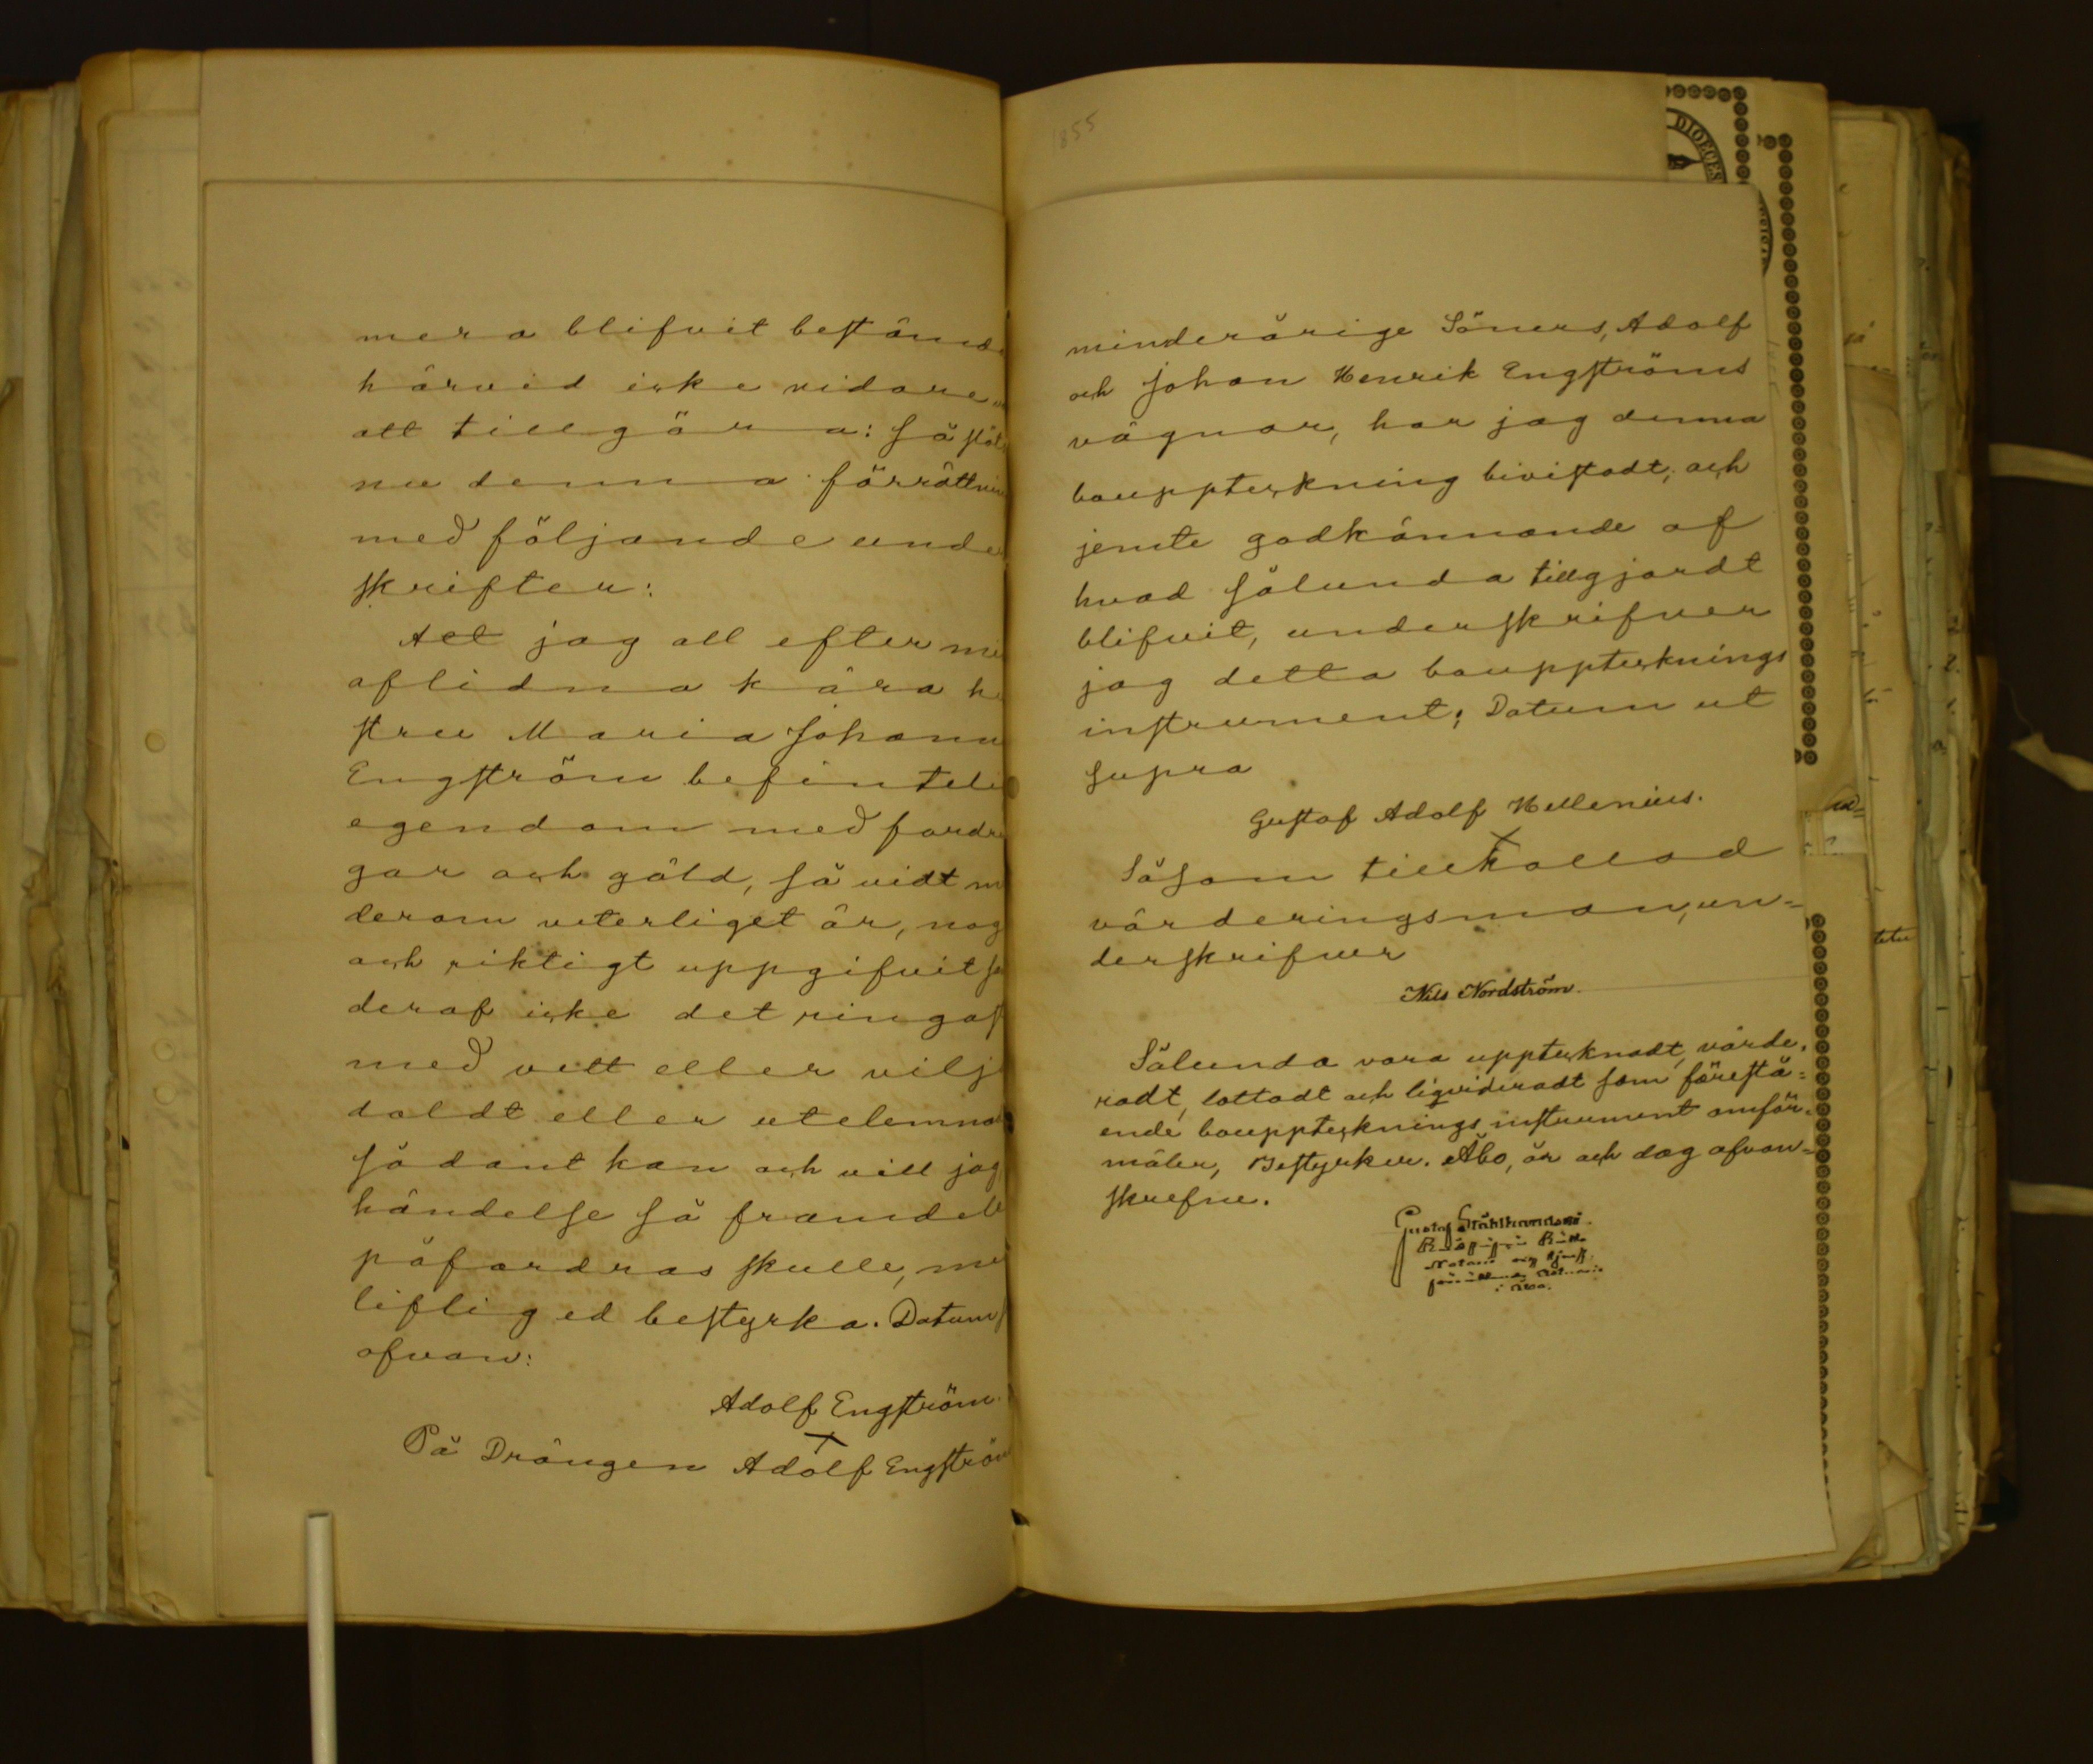 mera blifvit bestånd
härvid icke vidare
att tillgöra: så slöt
nu denna förrättnin
med följande under
skrifter:
Att jag all efter mi
aflidna kära h
stru Maria Johann
Engström befintel
egendom med fordr
gar och gäld, så vidt m
derom veterligt är, nog
och riktigt uppgifvit
deraf icke det ringas
med vett eller vilj
doldt eller utelemna
sådant kan och vill jag
händelse så framdel
påfordras skulle, me
liflig ed bestyrka. Datum
ofvan:
Adolf Engström.
På Drängen Adolf Engström
1855
DIOECES
minderårige Söners, Adolf
och Johan Henrik Engströms
vägnar, har jag denna
bouppteckning bivistadt, och
jemte godkännande af
hvad sålunda tillgjordt
blifvit, underskrifver
jag detta boupptecknings
instrument; Datum ut
supra
Gustaf Adolf Hellenius.
Såsom tillkallad
värderingsman, un=
derskrifver
Nils Nordström.
Sålunda vara upptecknadt, värde-
radt, lottadt och liqvideradt som förestå=
ende bouppteckningsinstrument omför-
mäler, Bestyrker. Åbo, år och dag ofvan=
skrefne.
Gustaf Stålhandske
i Åbo.